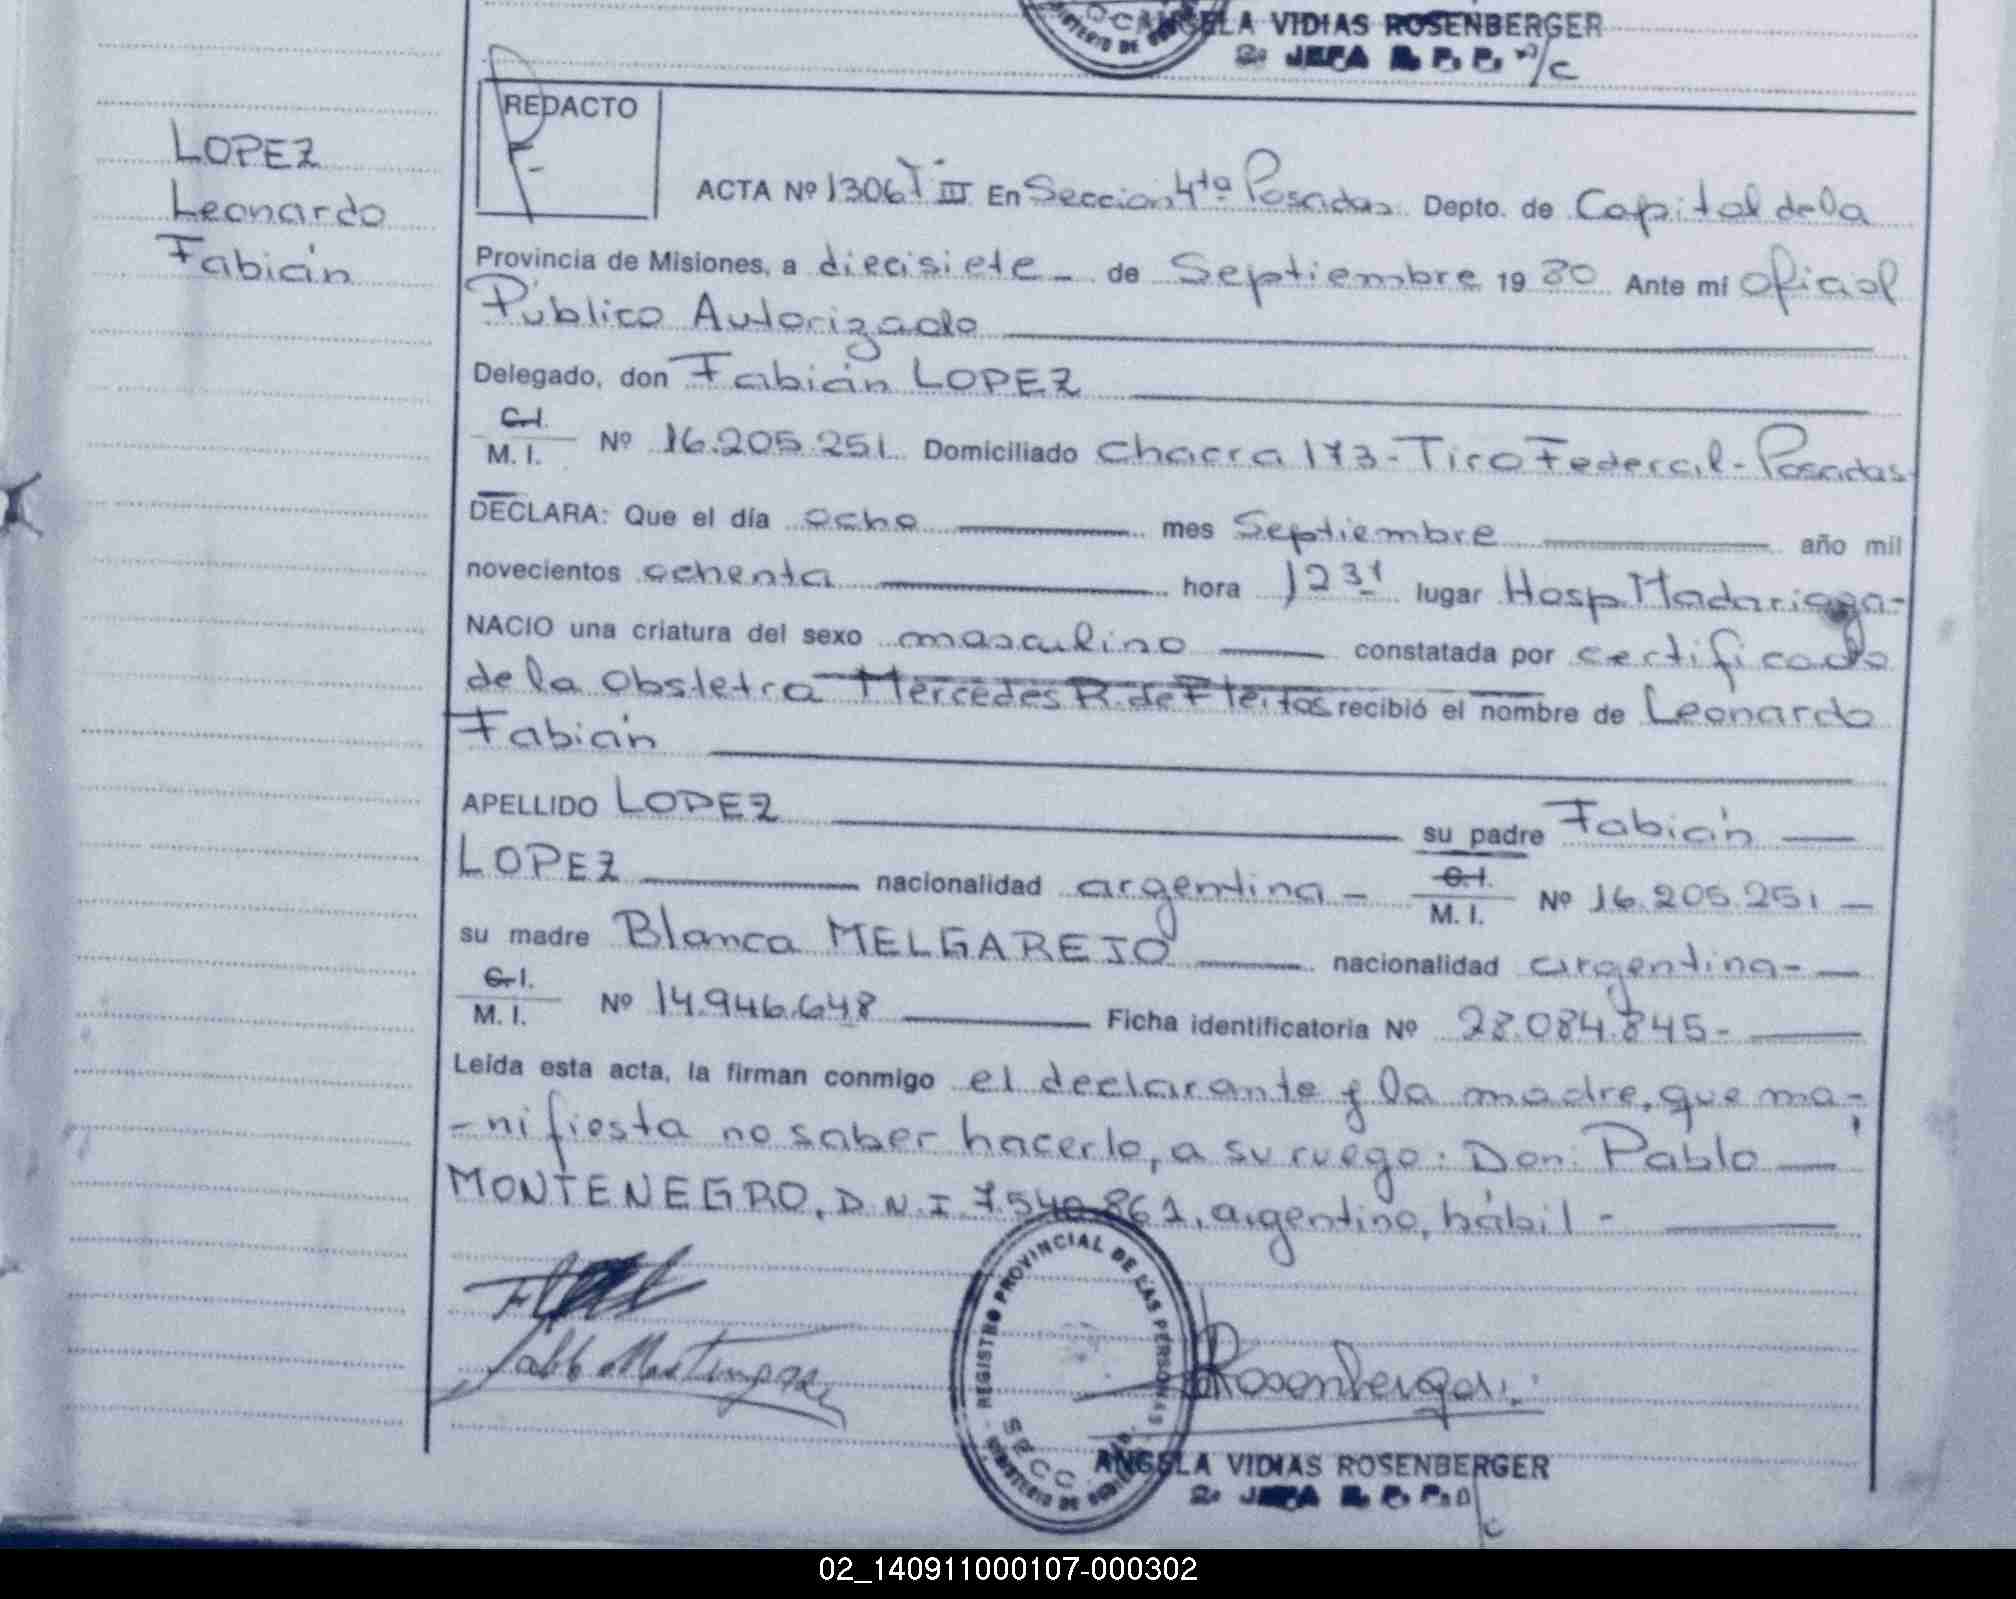 ANGELA VIDIAS ROSENBERGER
2º JEFA R. P. P. º/c
REDACTO
LOPEZ
Leonardo
Fabián
ACTA Nº 1306 T III En Seccion 4ta Posadas Depto. de Capital de la
Provincia de Misiones, a diecisiete - de Septiembre 19 80 Ante mí Oficial
Público Autorizado
Delegado, don Fabián LOPEZ
C.I.
M. I. Nº 16.205.251 Domiciliado Chacra 173 - Tiro Federal - Posadas
DECLARA: Que el día ocho mes Septiembre año mil
novecientos ochenta hora 12 31 lugar Hosp Madariaga -
NACIO una criatura del sexo masculino constatada por certificado
de la Obstetra Mercedes R. de Fleitas recibió el nombre de Leonardo
Fabián
APELLIDO LOPEZ su padre Fabián
LOPEZ nacionalidad argentina - C.I. M. I. Nº 16.205.251 -
su madre Blanca MELGAREJO nacionalidad argentina -
C.I.
M. I. Nº 14.946.648 Ficha identificatoria Nº 28.084.845 -
Leída esta acta, la firman conmigo el declarante y la madre, que ma-
-nifiesta no saber hacerlo, a su ruego: Don: Pablo
MONTENEGRO, D.N.I 7.540.861, argentino, hábil -
REGISTRO PROVINCIAL DE LAS PERSONAS
SECC
MINISTERIO DE
Rosenberger
ANGELA VIDIAS ROSENBERGER
2º JEFA R. P. P. º/c
02_140911000107-000302